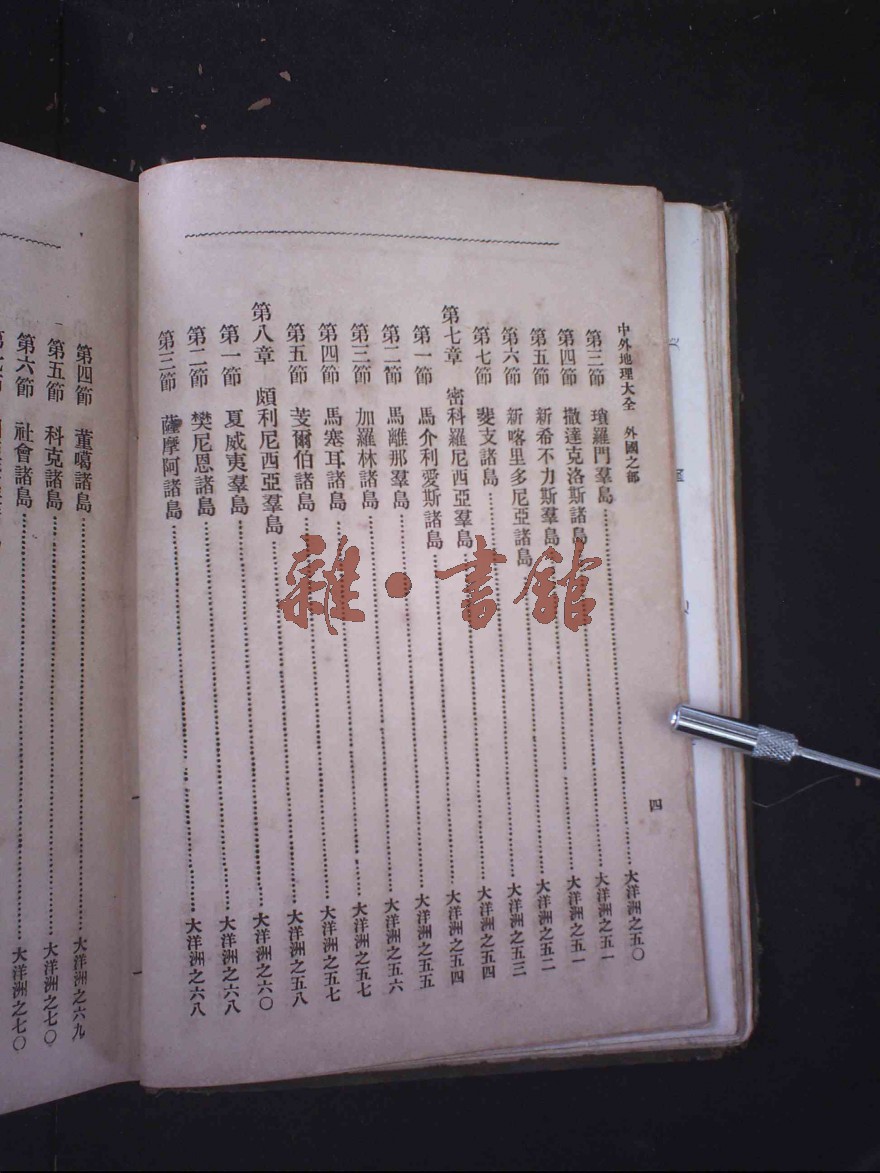 中外地理大全　外國之部
四
第三節　瑣羅門羣島……大洋洲之五〇
第四節　撒達克洛斯諸島……大洋洲之五一
第五節　新希不力斯羣島……大洋洲之五一
第六節　新喀里多尼亞諸島……大洋洲之五二
第七節　斐支諸島……大洋洲之五三
第七章　密科羅尼西亞羣島……大洋洲之五四
第一節　馬介利愛斯諸島……大洋洲之五四
第二節　馬離那羣島……大洋洲之五五
第三節　加羅林諸島……大洋洲之五六
第四節　馬塞耳諸島……大洋洲之五七
第五節　芰爾伯諸島……大洋洲之五七
第八章　頗利尼西亞羣島……大洋洲之五八
第一節　夏威夷羣島……大洋洲之六〇
第二節　樊尼恩諸島……大洋洲之六八
第三節　薩摩阿諸島……大洋洲之六八
第四節　董噶諸島……大洋洲之六九
第五節　科克諸島……大洋洲之七〇
第六節　社會諸島……大洋洲之七〇
雜·書館